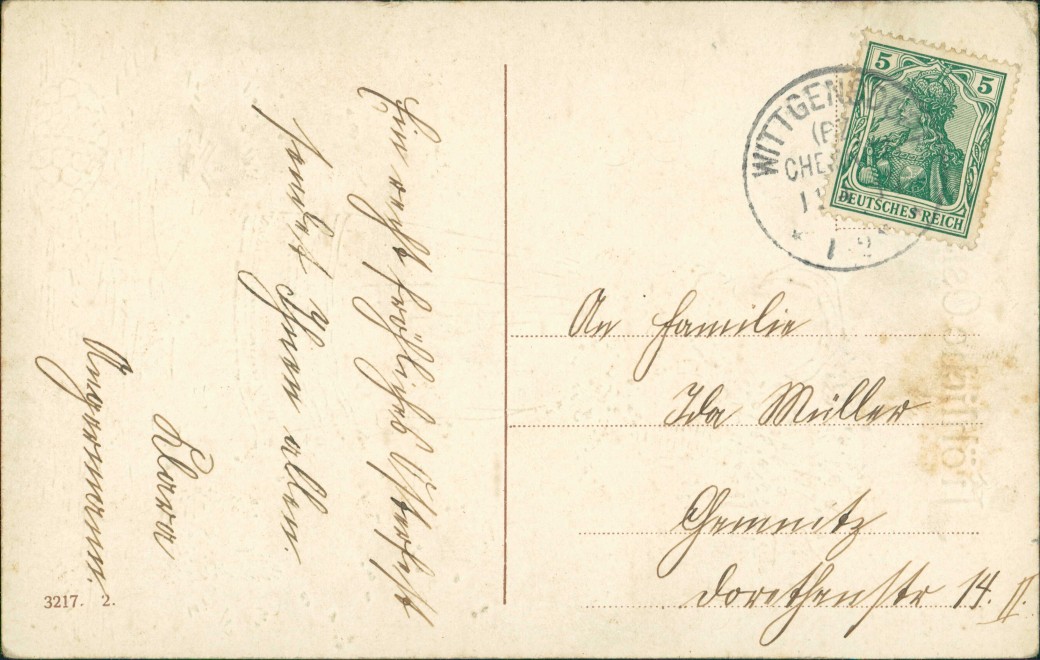 Ein recht fröhliches Osterfest
sendet Ihnen allen
Klara
Angermann.
3217. 2.
5 5
DEUTSCHES REICH
WITTGENSD
CHE
An Familie
Ida Müller
Chemnitz
Dorotheenstr 14. II.